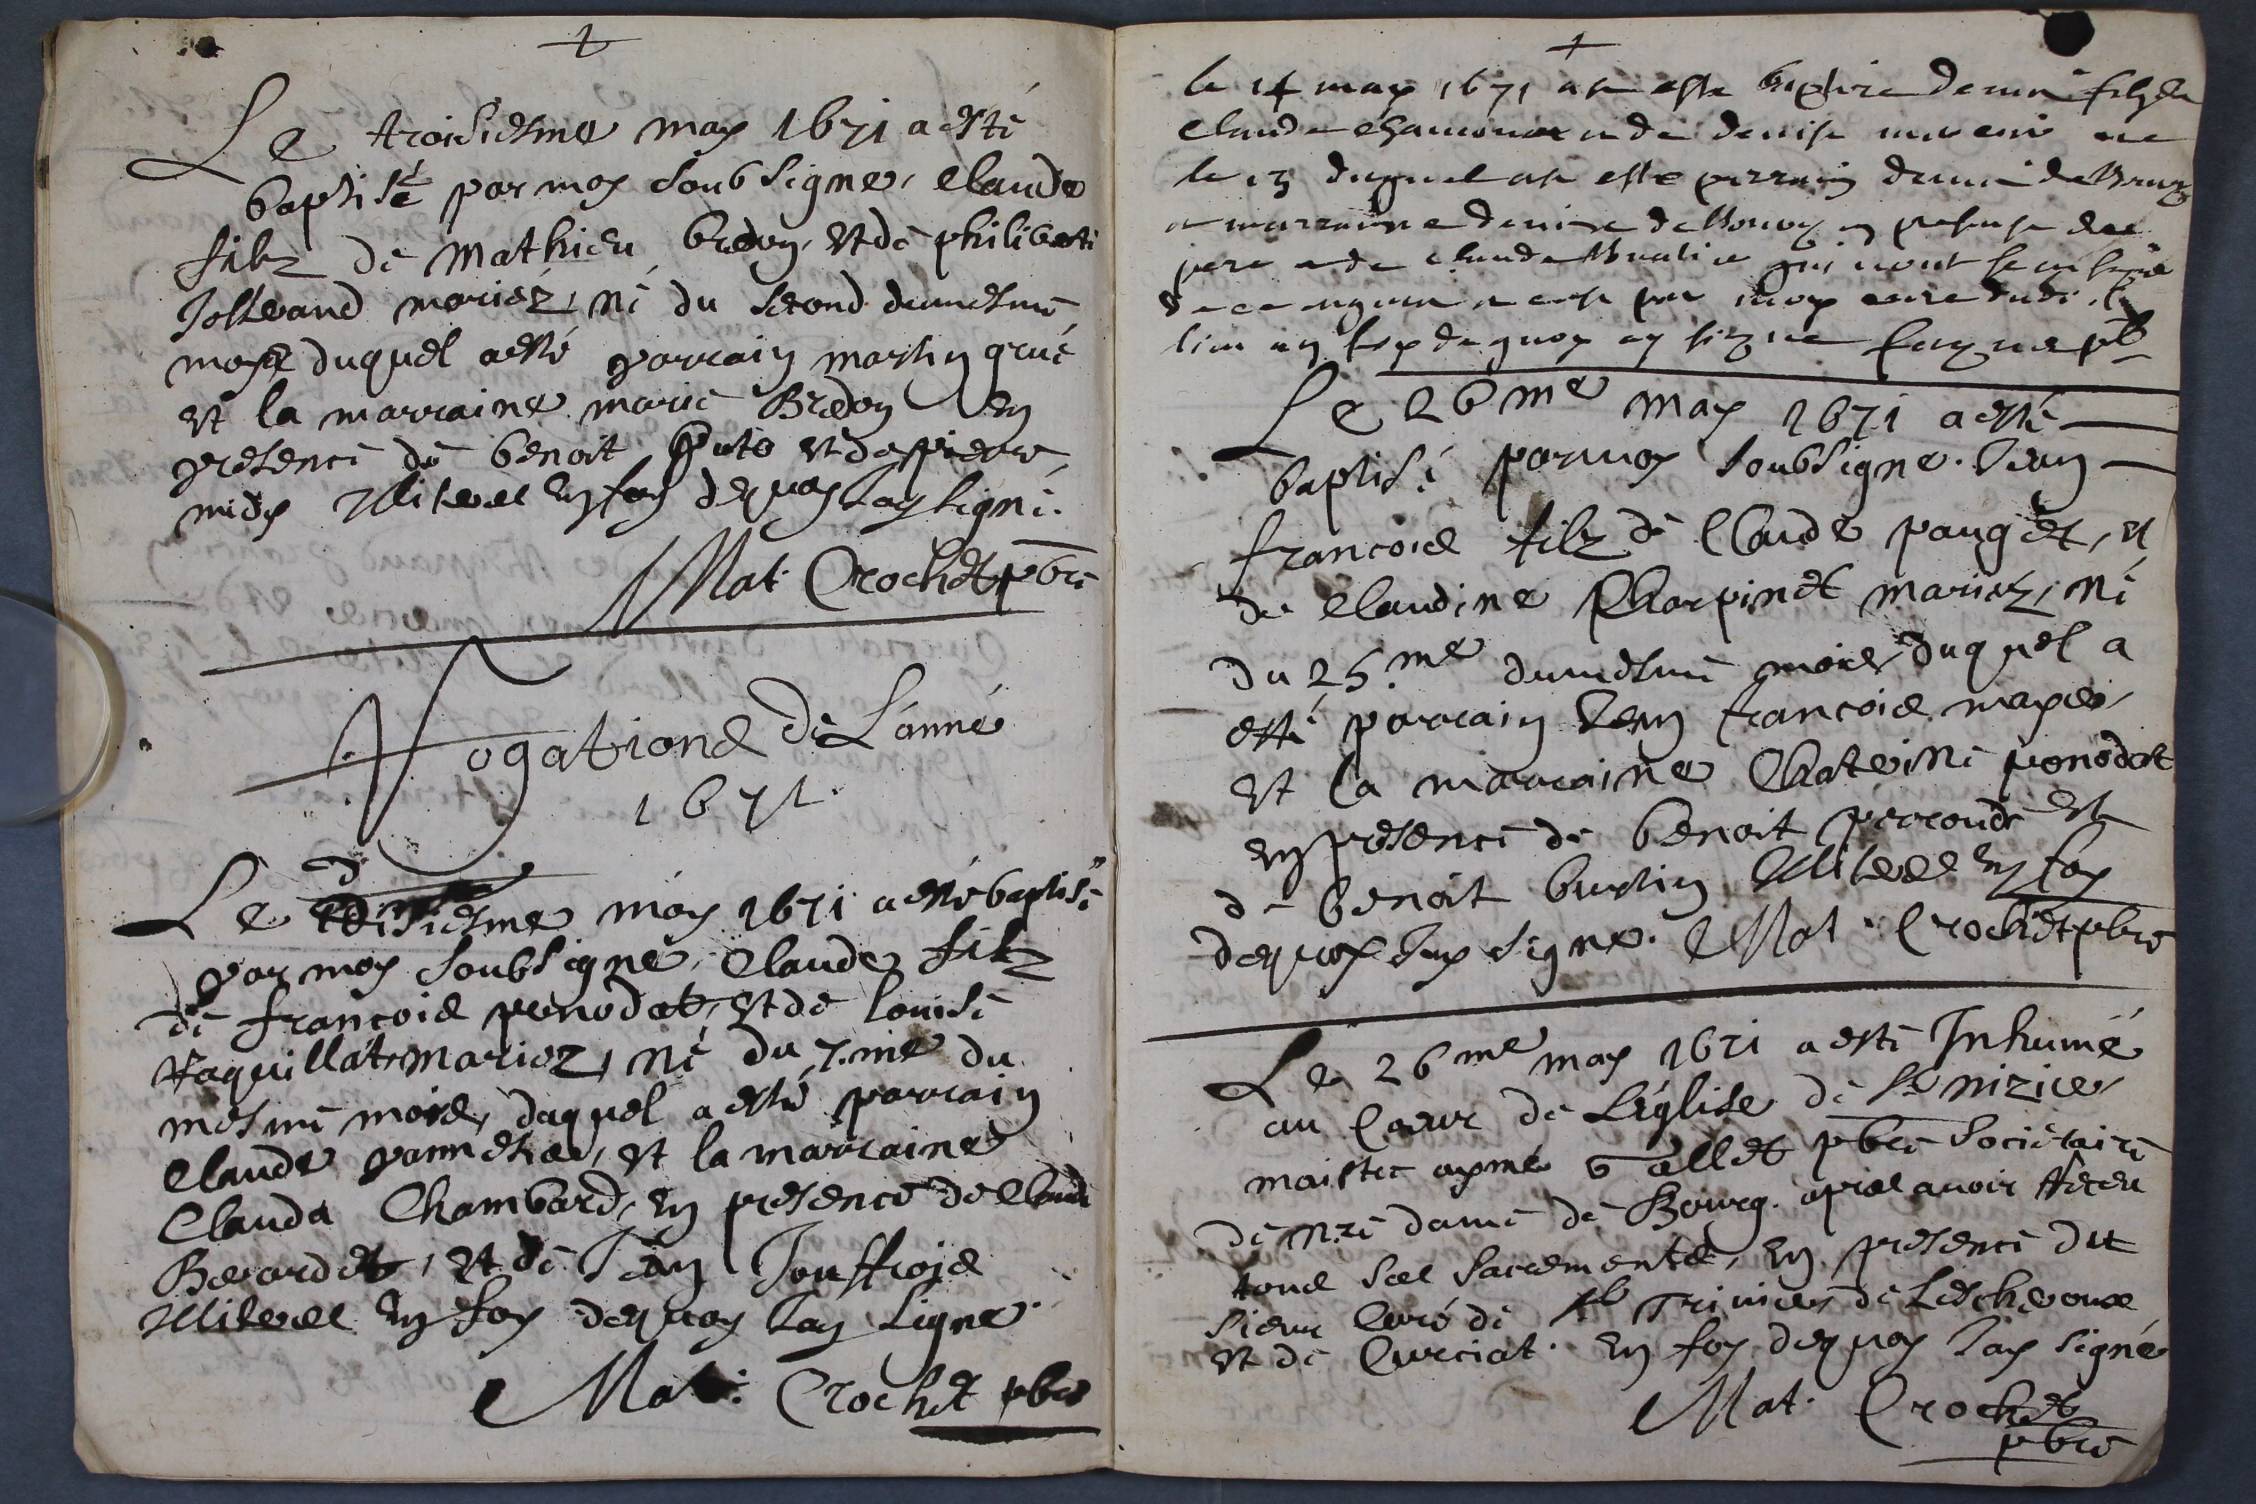 Le troisiesme may 1671 a esté
baptisé par moy soubsigne, Claude
filz de Mathieu bredon, et de philiberte
Jolivand mariez, né du second dumesme
moys duquel a esté parrain martin grué
et la marraine marie Bredon en
presence de benoit puto et de pierre
midy Illiteres en foy dequoy Jay signé.
Mat. Crochet pbre
Rogations de L'anné
1671.
Le disiesme may 1671 a esté baptisé
par moy soubsigné, Claude filz
de françois penodet, et de louise
Jaquillat mariez, né du 7.me du
mesme mois, duquel a esté parrain
Claude pannetier, et la marraine
Clauda Chambard, en presence de Claude
Berardet, et de Jean Jouffrois
Illiteres en foy dequoy Jay signe.
Mat. Crochet pbre
le 14 may 1671 a este baptize denis filz de
Claude et de denise ne
le 13 duquel a este perrain denis
et marrainne denise en presense de
pere et de claude qui nont
par moy cure dudit
lieu en foy de quoy ay signe pbr
Le 26me may 1671 a esté
baptisé parmoy soubsigne. Jean
francois filz de Claude pauget, et
de Claudine Charpinet mariez, né
du 25.me dumesme mois, duquel a
esté parrain Jean francois
et la marraine Chaterine ponodet
en presence de benoit perroude et
de benoit burtin Illiteres en foy
dequoy Jay signe. Mat. Crochet pbre
Le 26me may 1671 a esté Inhumé
au Coeur de L'église de St nizier
maistre aymé vallet pbre sociétaire
de nre dame de Bourg. apres avoir Receu
tous ses sacrements, en presence du
sieur Curé de St Trivier, de Lescheroux
et de Curciat. en foy dequoy Jay signé
Mat. Crochet
pbre